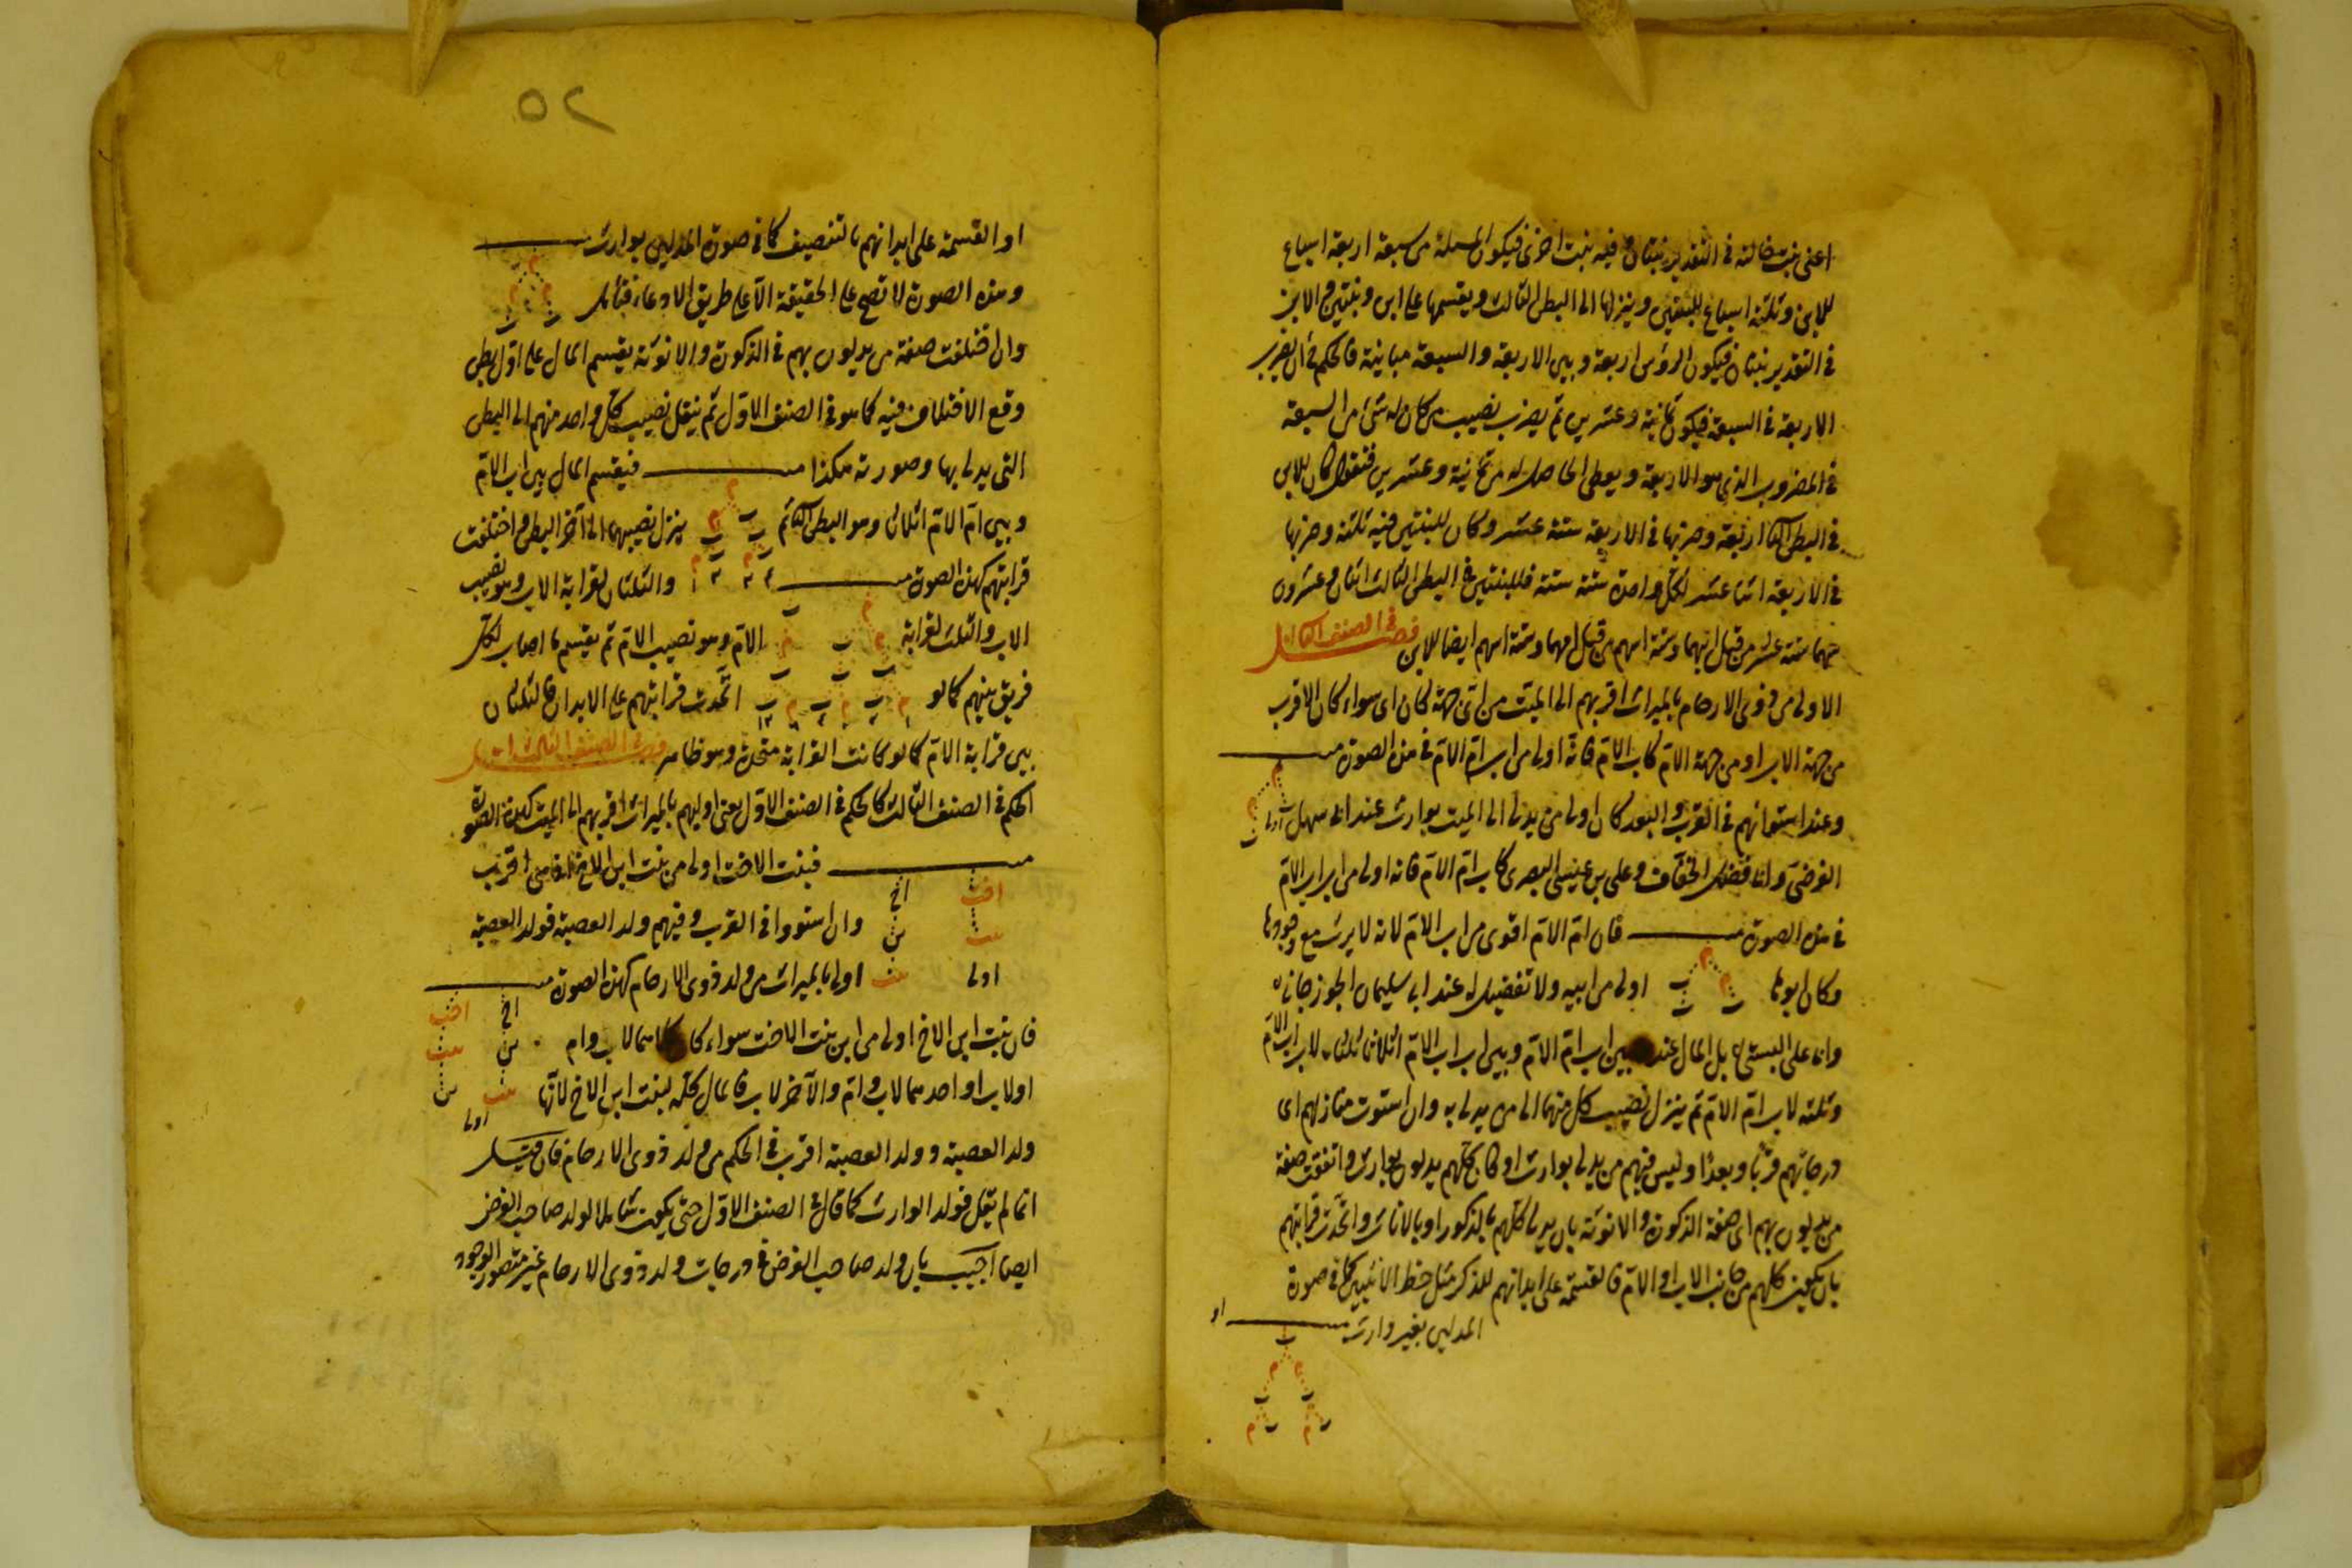 اعنى بنت خالته فى التقدير بنتان وفيه بنت اخرى فيكون المسئلة من سبعة اربعة اسباع
للابن وثلثة اسباع للبنتين وينزلها الى البطن الثالث ويقسمها على ابن وبنتين والابن
فى التقدير بنتان فيكون الرؤس اربعة وبين الاربعة والسبعة مباينة فالحكم فى ان يضرب
الاربعة فى السبعة فيكون ثمانية وعشرين ثم يضرب نصيب من كان له شئ من السبعة
فى المضروب الذى هو الاربعة ويعطى الحاصل له من ثمانية وعشرين فنقول كان للابن
فى البطن الثانى اربعة وضربها فى الاربعة ستة عشر وكان للبنتين فيه ثلثة وضربها
فى الاربعة اثنا عشر لكل واحدة ستة ستة فللبنتين فى البطن الثالث اثنان وعشرون
سهما ستة عشر من قبل ابيهما وستة اسهم من قبل امهما وستة اسهم ايضا للابن فصل فى الصنف الثانى
الاولى من ذوى الارحام بالميراث اقربهم الى الميت من اى جهة كان اى سواء كان الاقرب
من جهة الاب او من جهة الام كاب الام فانه اولى من اب ام الام فى هذه الصورة
وعند استوائهم فى القرب والبعد كان اولى من يدلى الى الميت بوارث عند ابى سهل اولى
الفرضى وابى فضل الخفاف وعلى بن عيسى البصرى كاب ام الام فانه اولى من اب اب الام
فى هذه الصورة فان ام الام اقوى من اب الام لانه لا يرث مع وجودها
وكان ابوها م ب اولى من ابيه ولا تفضيل له عند ابى سليمان الجوزجانى
وابى على البستى بل المال عند بين اب ام الام وبين اب اب الام اثلاثا ثلثان لاب اب الام
وثلثه لاب ام الام ثم ينزل نصيب كل منهما الى من يدلى به وان استوت منازلهم اى
درجاتهم قربا وبعدا وليس فيهم من يدلى بوارث او كان كلهم يدلون بوارث واتفقت صفة
من يدلون بهم اى صفة الذكورة والانوثة بان يدلى كلهم بالذكور او بالاناث واتحدت قرابتهم
بان يكون كلهم من جانب الاب او الام فالقسمة على ابدانهم للذكر مثل حظ الانثيين كما فى صورة
المدلين بغير وارث او
٥٢
او القسمة على ابدانهم بالتنصيف كما فى صورة المدلين بوارث
وهذه الصورة لا تصح على الحقيقة الا على طريق الادعاء فتأمل
وان اختلفت صفة من يدلون بهم فى الذكورة والانوثة يقسم المال على اول بطن
وقع الاختلاف فيه كما هو فى الصنف الاول ثم ينقل نصيب كل واحد منهم الى البطن
التى يدلى بها وصورته هكذا فيقسم المال بين اب الام
وبين ام الام اثلاثا وهو البطن الثانى ثم ينزل نصيبهما الى آخر البطن واختلفت
قرابتهم كهذه الصورة والثلثان لقرابة الاب وهو نصيب
الاب والثلث لقرابة الام وهو نصيب الام ثم يقسم ما اصاب لكل
فريق بينهم كما لو اتحدت قرابتهم على الابدان فالثلثان
بين قرابة الام كما لو كانت القرابة متحدة وهو ظاهر فصل فى الصنف الثالث
الحكم فى الصنف الثالث كالحكم فى الصنف الاول يعنى اوليهم بالميراث اقربهم الى الميت كهذه الصورة
فبنت الاخت اولى من بنت ابن الاخ اقرب
اخت اخ
بنت بن وان استووا فى القرب وفيهم ولد العصبة فولد العصبة
اولى بنت اولى بالميراث من ولد ذوى الارحام كهذه الصورة
فان بنت ابن الاخ اولى من ابن بنت الاخت سواء كا كلاهما لاب وام
اخ اخت
بن بنت
او لاب او احدهما لاب وام والآخر لاب فالمال كله لبنت ابن الاخ لانها
بنت بن
اولى
ولد العصبة وولد العصبة اقرب فى الحكم من ولد ذوى الارحام فان قيل
انما لم يقل فولد الوارث كما قال فى الصنف الاول حتى يكون شاملا لولد صاحب الفرض
ايضا اجيب بان ولد صاحب الفرض فى درجات ولد ذوى الارحام غير متصور الوجود